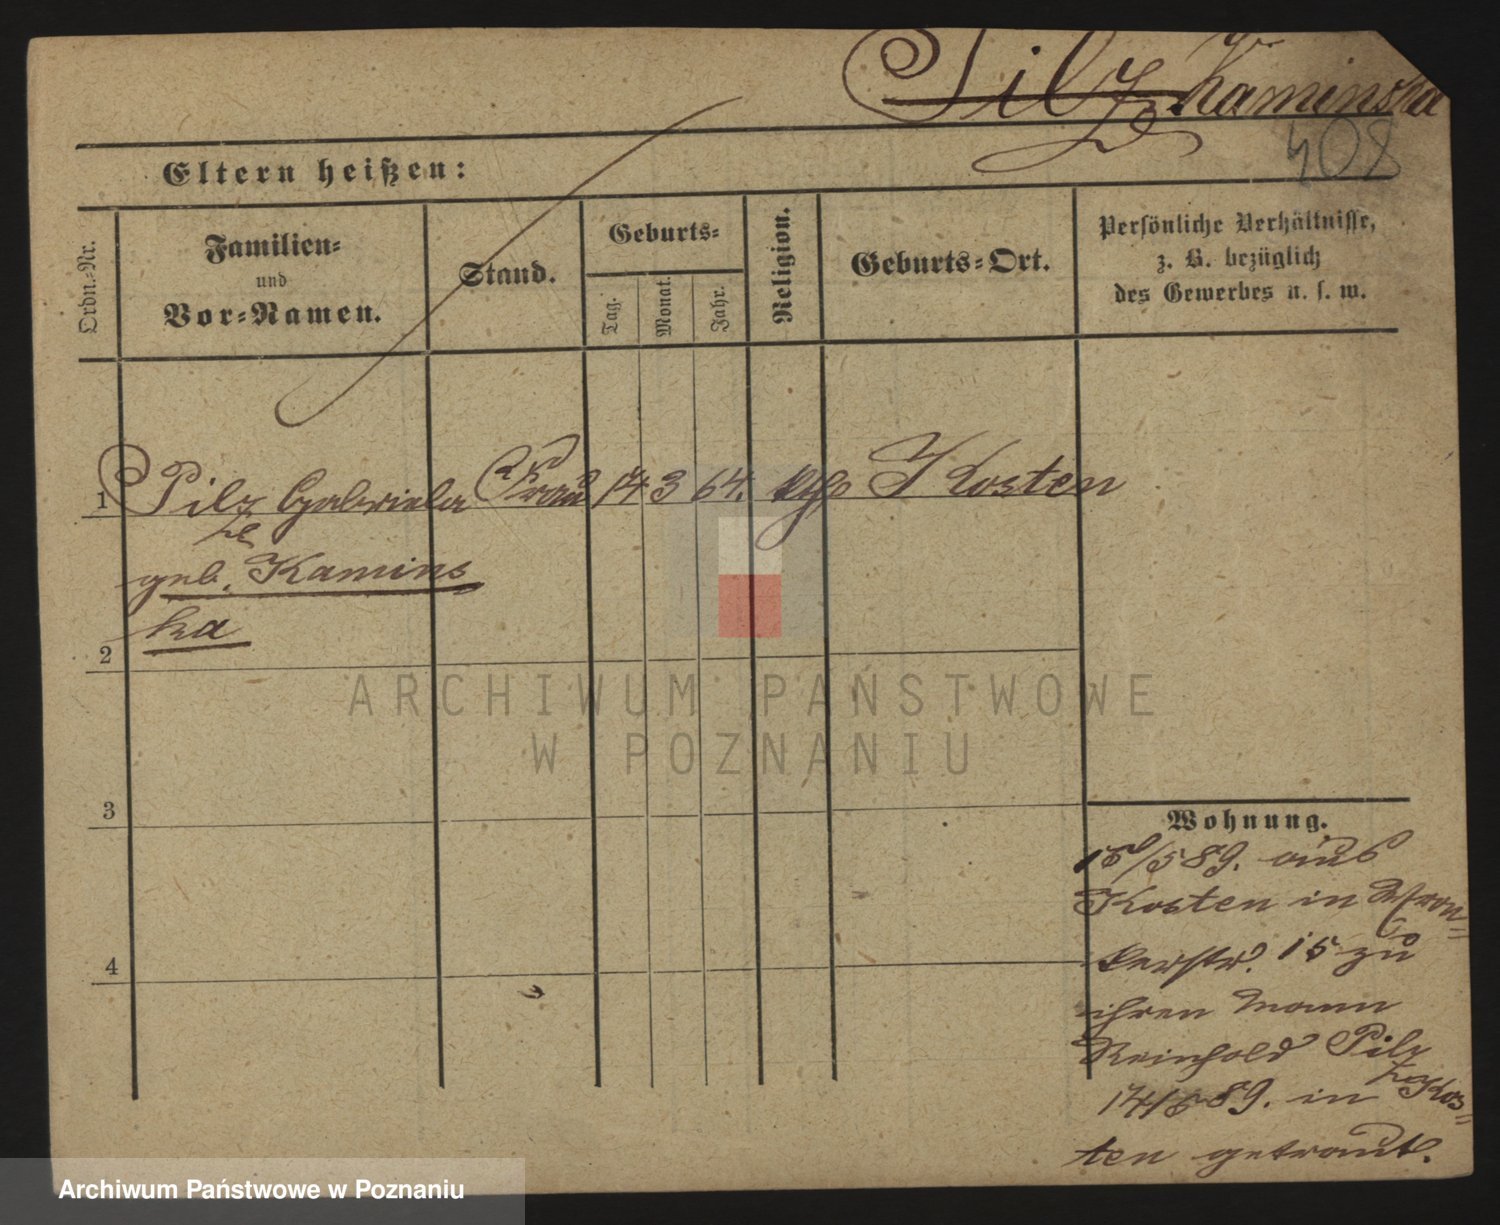 Pilz Kaminska
408
Eltern heißen:
Ordn.=Nr.
Familien=
und
Vor=Namen.
Stand.
Geburts=
Tag.
Monat.
Jahr.
Religion.
Geburts=Ort.
Persönliche Verhältnisse,
z. B. bezüglich
des Gewerbes u. s. w.
1 Pilz Gabriela Frau 14 3 64. kth Kosten
geb. Kamins
ka
2
3
4
Wohnung.
15/5 89. aus
Kosten in Wron=
kerstr. 15 zu
ihren Mann
Reinhold Pilz
14/5 89. in Kos=
ten getraut.
ARCHIWUM PAŃSTWOWE
W POZNANIU
Archiwum Państwowe w Poznaniu